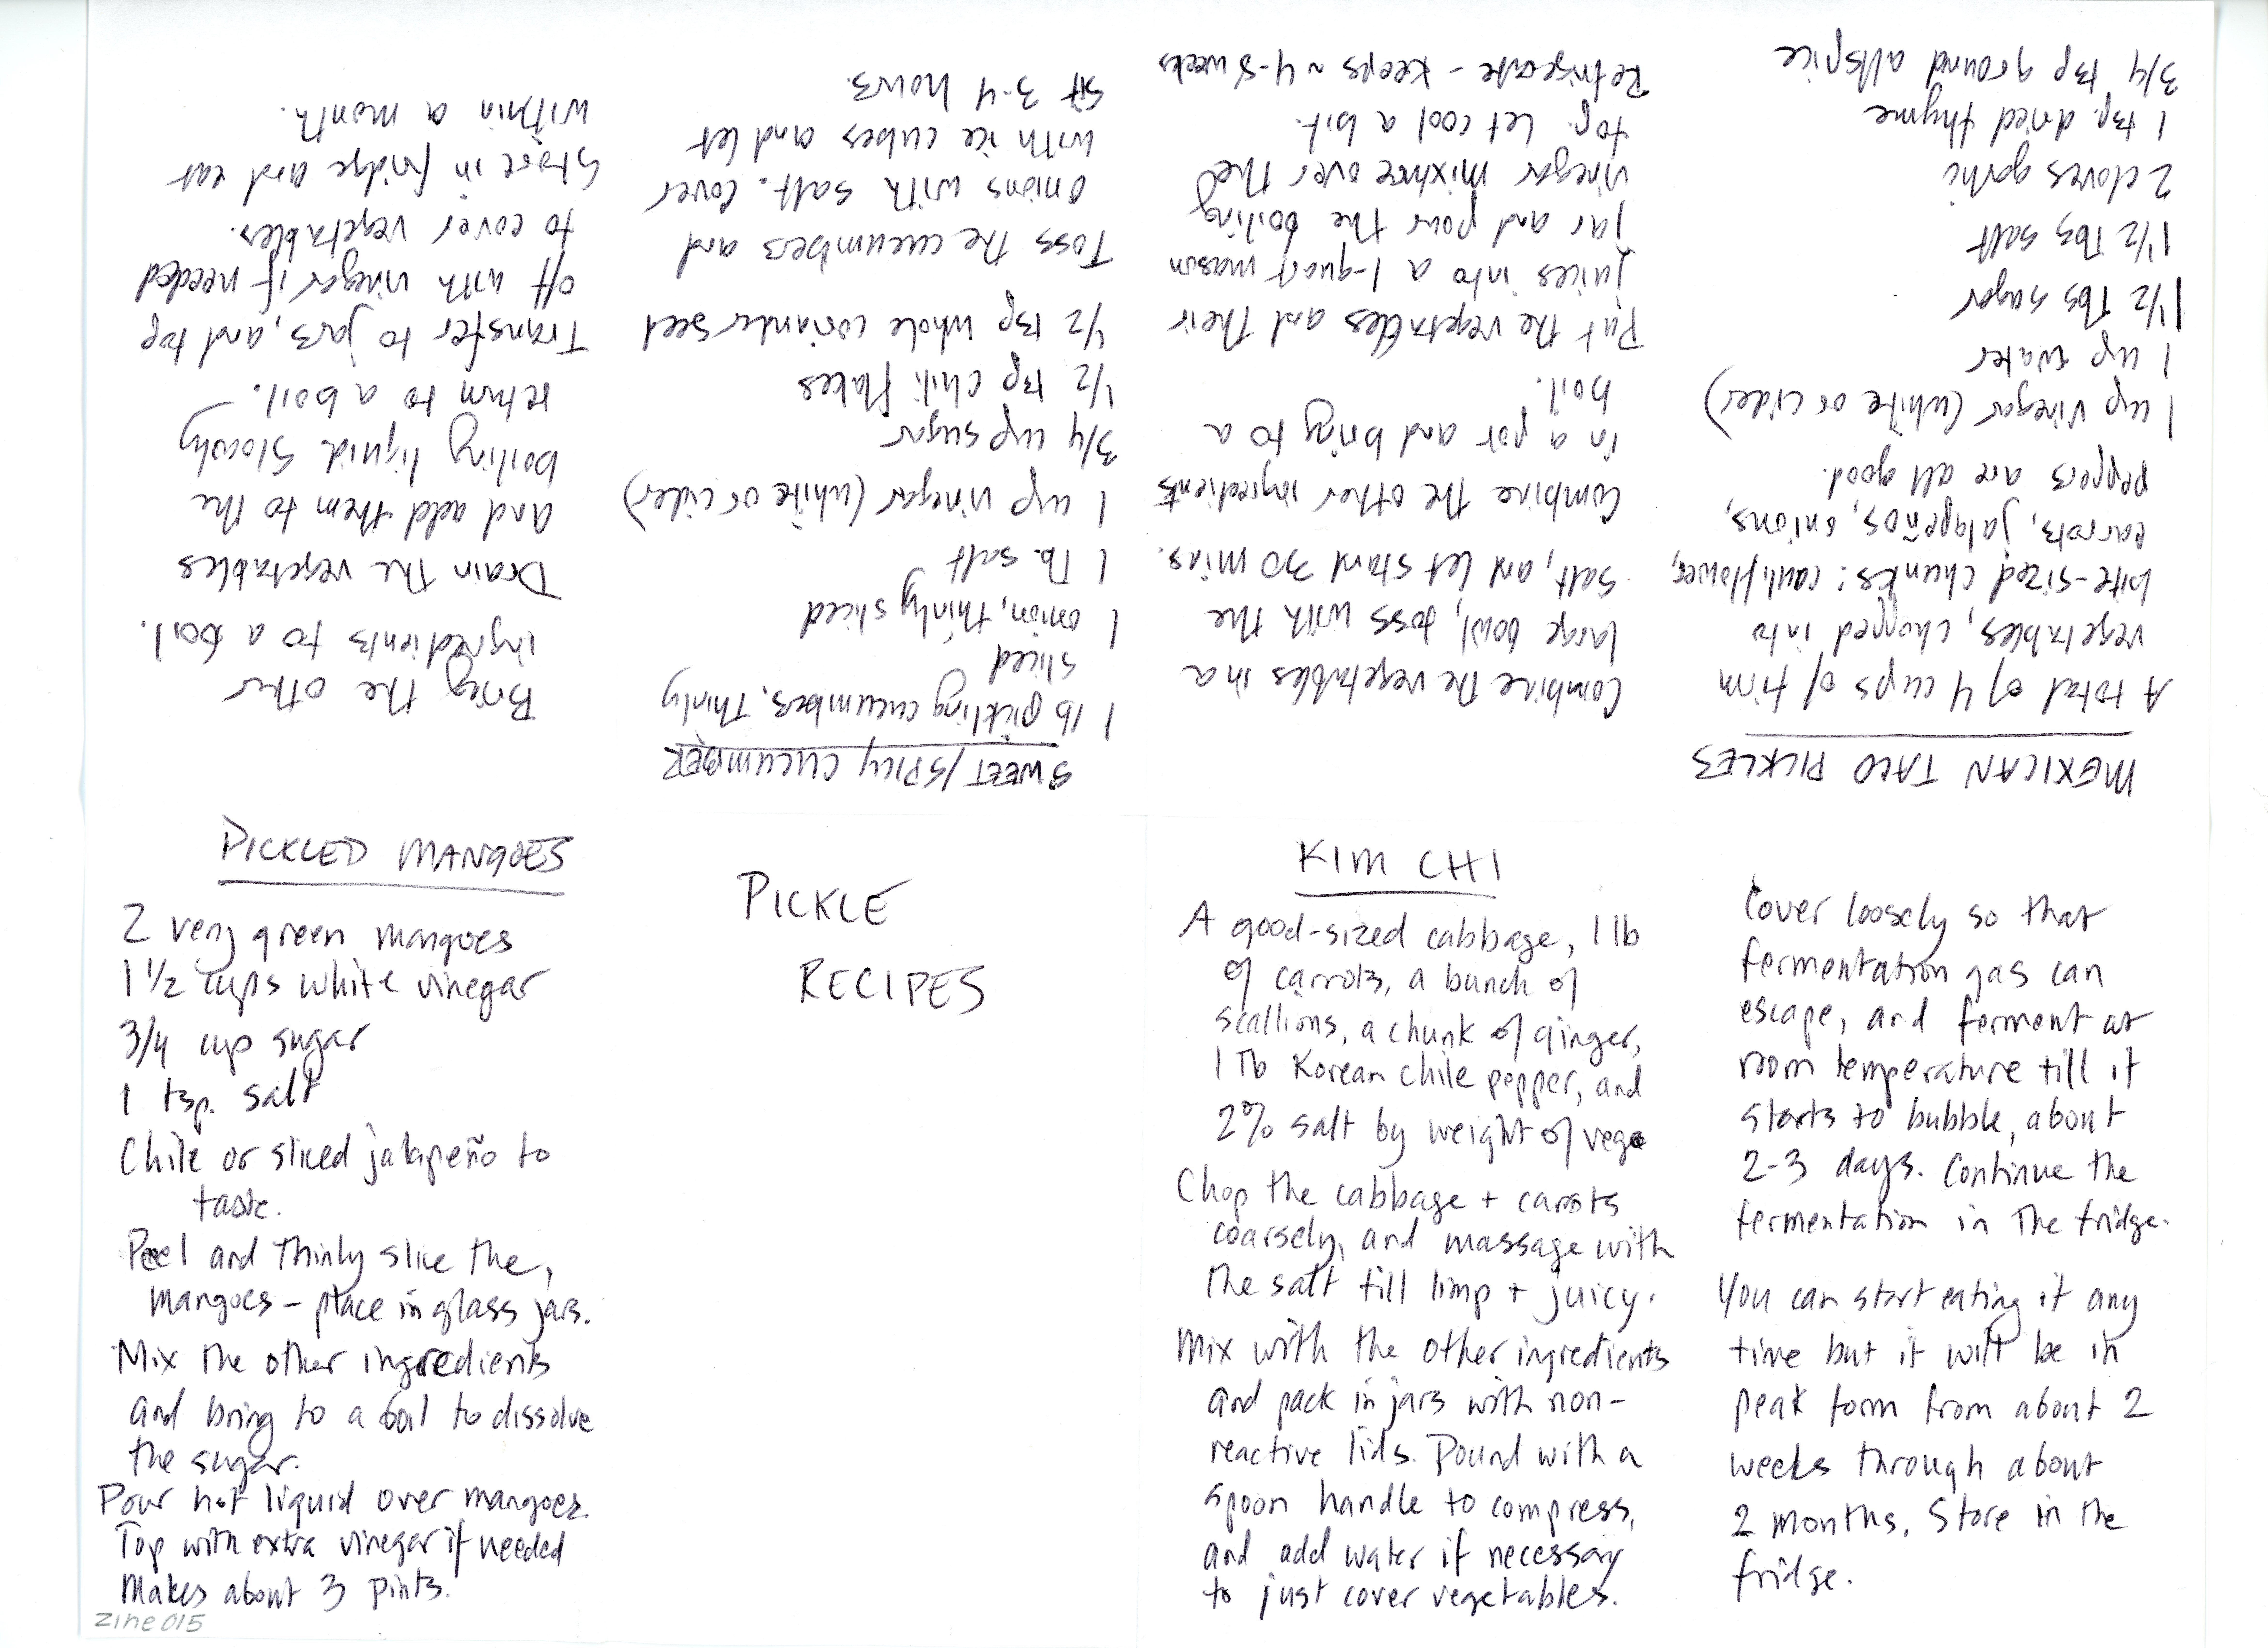 PICKLE
RECIPES
KIM CHI
A good-sized cabbage, 1 lb
of carrots, a bunch of
scallions, a chunk of ginger,
1 Tb Korean chile pepper, and
2% salt by weight of vege
Chop the cabbage + carrots
coarsely, and massage with
the salt till limp + juicy.
Mix with the other ingredients
and pack in jars with non-
reactive lids. Pound with a
spoon handle to compress,
and add water if necessary
to just cover vegetables.
Cover loosely so that
fermentation gas can
escape, and ferment at
room temperature till it
starts to bubble, about
2-3 days. Continue the
fermentation in the fridge.
You can start eating it any
time but it will be in
peak form from about 2
weeks through about
2 months. Store in the
fridge.
MEXICAN TACO PICKLES
A total of 4 cups of firm
vegetables, chopped into
bite-sized chunks: cauliflower,
carrots, jalapeños, onions,
peppers are all good.
1 cup vinegar (white or cider)
1 cup water
1 1/2 Tbs sugar
1 1/2 Tbs salt
2 cloves garlic
1 tsp. dried thyme
3/4 tsp ground allspice
Combine the vegetables in a
large bowl, toss with the
salt, and let stand 30 mins.
Combine the other ingredients
in a pot and bring to a
boil.
Put the vegetables and their
juices into a 1-quart mason
jar and pour the boiling
vinegar mixture over the
top. Let cool a bit.
Refrigerate - keeps ~ 4-5 weeks
SWEET/SPICY CUCUMBER
1 lb pickling cucumbers, thinly
sliced
1 onion, thinly sliced
1 Tb. salt
1 cup vinegar (white or cider)
3/4 cup sugar
1/2 tsp chili flakes
1/2 tsp whole coriander seed
Toss the cucumbers and
onions with salt. Cover
with ice cubes and let
sit 3-4 hours.
Bring the other
ingredients to a boil.
Drain the vegetables
and add them to the
boiling liquid. Slowly
return to a boil.
Transfer to jars, and top
off with vinegar if needed
to cover vegetables.
Store in fridge and eat
within a month.
PICKLED MANGOES
2 very green mangoes
1 1/2 cups white vinegar
3/4 cup sugar
1 tsp. salt
Chile or sliced jalapeño to
taste.
Peel and thinly slice the
mangoes - place in glass jars.
Mix the other ingredients
and bring to a boil to dissolve
the sugar.
Pour hot liquid over mangoes.
Top with extra vinegar if needed
Makes about 3 pints.
zine015